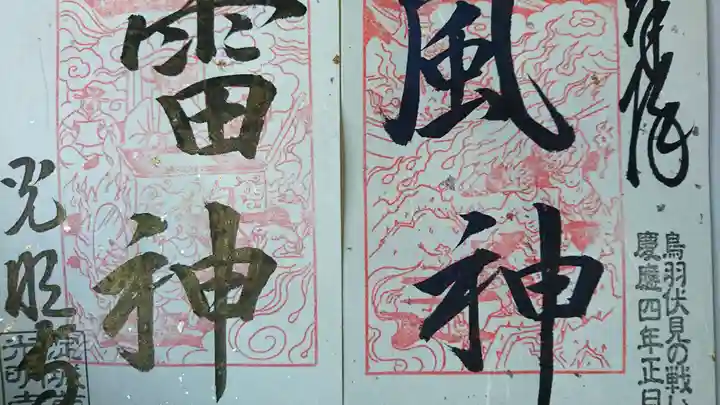 奉拝
鳥羽伏見の戦い
慶應四年正月
風神
雷神
光明寺